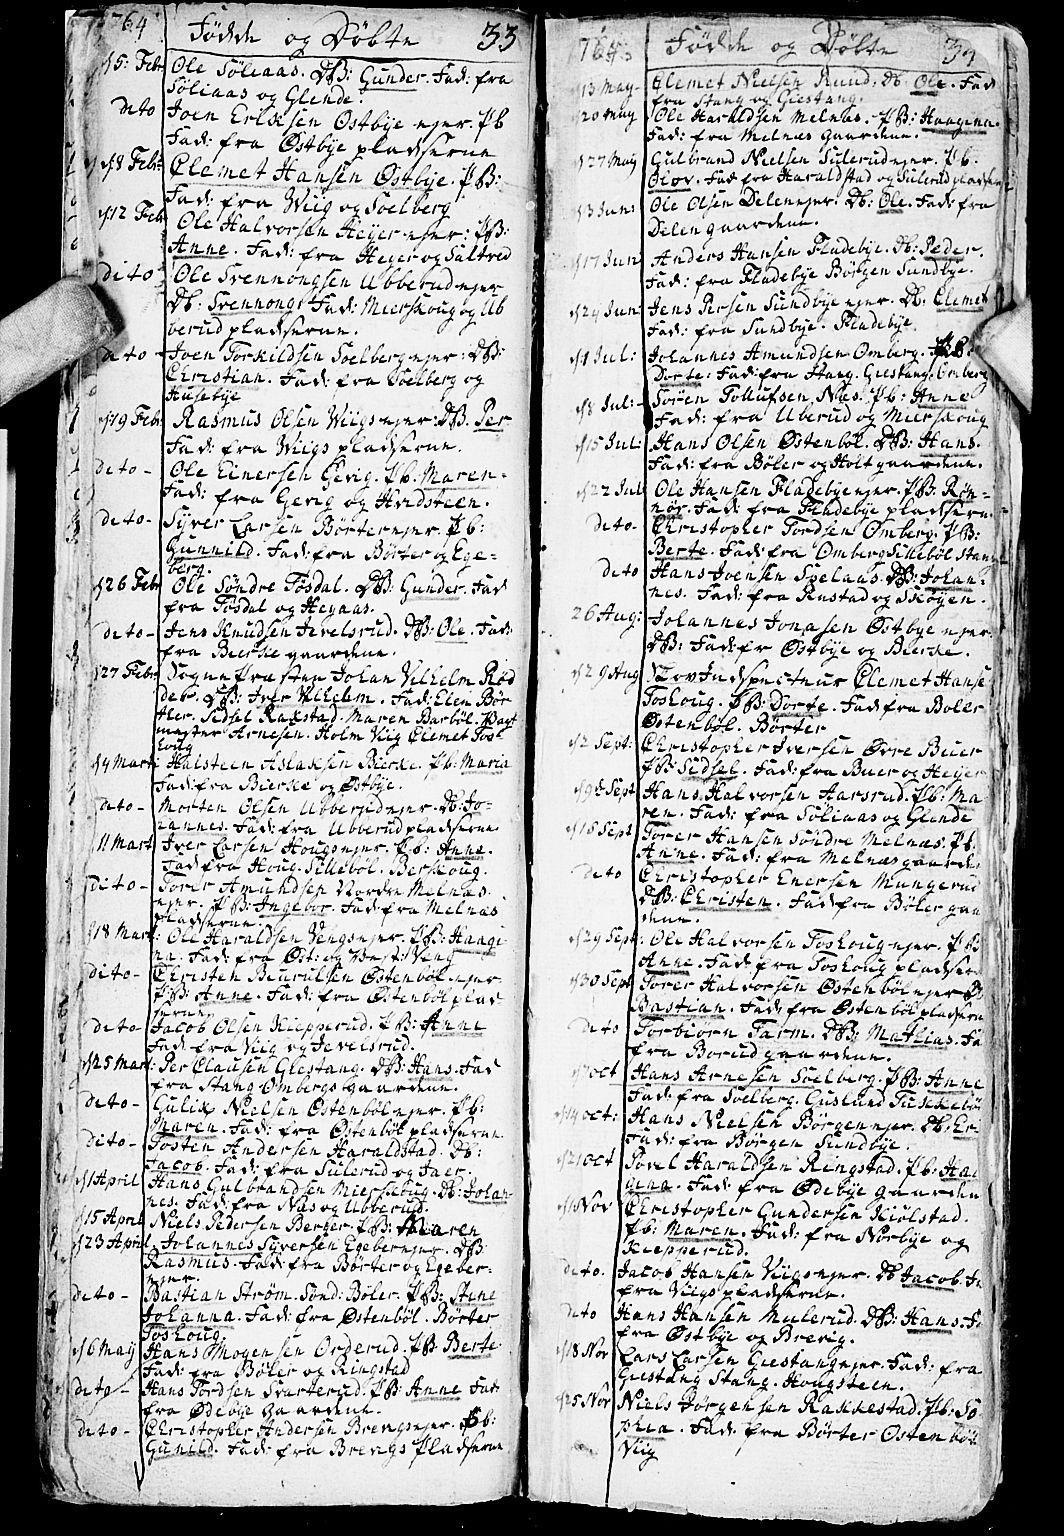 1764 Födde og Döbte 33
d 5: Febr Ole Söliaas. DB: Gunder. Fad: fra
Söliaas og Glende.
deto Joen Eriksen Ostbye ejer. Pb
Fad: fra Østbye pladserne
d 8 Febr: Clemet Hansen Østbye. PB:
Fad: fra Wiig og Soelberg
d 12 Feb Ole Halvorsen Heyer ejer: PB:
Anne. Fad: fra Heyer og Saltved
deto Ole Svennongsen Ubberud ejer
Db: Svennong. Fad: Mierskoug og Ub
berud pladserne.
deto - Joen Torkildsen Soelberg ejer: DB:
Christian. Fad: fra Soelberg og
Husebye
d 19 Febr: Rasmus Olsen Wiigs ejer: DB: Per
Fad: fra Wiigs pladserne.
deto - Ole Einersen Gevig. Pb. Maren.
Fad: fra Gevig og Hvidsteen.
deto - Syver Larsen Börter ejer. Pb:
Gunnild. Fad: fra Börter og Ege-
berg.
d 26 Febr Ole Söndre Tösdal. DB: Gunder. Fad
fra Tösdal og Heyaas.
deto - Jens Knudsen Jevelsrud. DB: Ole. Fad:
fra Bierke gaardene.
d 27 Febr Sogne Præsten Johan Vilhelm Röd
der. DB: Iver Vilhelm. Fad: Elen Bör
ter. Sidsel Rakstad. Maren Barböl. Vagt
mester Arnesen. Holm Viig Clemet Tos
koug
d 4 Mart: Halsteen Aslaksen Bierke. Pb: Maria
Fad: fra Bierke og Østbye.
deto - Morten Olsen Ubberud ejer. Db: Jo-
hannes. Fad: fra Ubberud pladserne
11 Mart Iver Larsen Hougs ejer. Pb: Anne.
Fad fra Houg. Silleböl. Berskoug.
dito - Torer Amundsen Nordre Melnas
ejer. PB: Ingebor. Fad: fra Melnas
pladserne.
d 18 Mart: Ole Haraldsen Vengs ejer. PB: Haagi
na. Fad: fra Öst: og Vest: Veng
dito - Christen Beurulsen Østenböl ejer
PB: Anne. Fad: fra Østenböl plad
serne
deto Jacob Olsen Kiepperud. PB: Anne
Fad: fra Viig og Jevelsrud.
d 25 Mart: Per Clausen Giestang. DB: Hans. Fad
fra Stang Ombergs gaardene.
deto - Gulik Nielsen Østenböl ejer. Pb:
Maren. Fad: fra Østenböl pladserne
dito - Tosten Andersen Haraldstad. Db:
Jacob. Fad: fra Sulerud og Jaer.
d 1 April Hans Gulbrandsen Mierskoug. Db: Johan
nes. Fad: fra Nas og Ubberud.
d 15 April Niels Pedersen Berger. PB: Maren
d 23 April Johannes Syversen Egeber ejer. DB:
Rasmus. Fad: fra Börter og Egeber-
ejer.
deto - Bastian Ström. Sönd: Böler. PB: Anne
Johanna. Fad: fra Østenböl. Börter
Toskoug.
d 6 May Hans Mogensen Orderud. PB Berte
Fad: fra Böler og Ringstad
deto - Hans Tordsen Svarterud. PB: Anne Fad
fra Ødebye gaardene.
deto - Christopher Andersen Brevigs ejer. Pb:
Gunild. Fad: fra Brevigs Pladserne
1764 Födde og Döbte 34
d 13 May Clemet Nielsen Ruud. Db. Ole. Fad
fra Stang og Giestang.
d 20 May Ole Haraldsen Melnas. PB: Haagena.
Fad: fra Melnas gaardene.
d 27 May Gulbrand Nielsen Sulerud ejer. Pb.
Olov. Fad fra Haraldstad og Sulerud pladserne
d 3 Jun: Ole Olsen Delen ejer. Db: Ole. Fad: fra
Delen gaardene.
d 17 Jun Anders Hansen Fladebye. Db: Peder.
Fad: fra Fladebye Börgen Sundbye.
d 24 Jun: Jens Persen Sundbye ejer. Db. Clemet
Fad: fra Sundbye. Fladebye
d 1 Jul: Johannes Amundsen Omberg. PB:
Dorte: Fad: fra Stang. Giestang. Omberg
d 8 Jul: Sören Tollufsen Nas. Pb: Anne
Fad: fra Uberud og Mierskoug
d 15 Jul Hans Olsen Østenböl. DB: Hans.
Fad: fra Böler og Holt gaardene.
d 22 Jul Ole Hansen Fladebye ejer. PB: Rön-
nör. Fad: fra Fladebye pladserne
deto - Christopher Tordsen Omberg. PB:
Berte. Fad: fra Omberg Silleböl Stang
deto Hans Joensen Spelaas. DB: Johan-
nes. Fad: fra Renstad og Sköyen.
26 Aug: Johannes Jonasen Østbye ejer.
DB: Fad: fr Østbye og Bierke.
d 29 Aug Skov Inspecteur Clemet Hansen
Toskoug. PB: Dorte. Fad fra Boler
Østenböl. Börter
d 2 Sept: Christopher Iversen Øvre Buer
PB: Sidsel. Fad: fra Buer og Heyer
d 9de Sept Hans Halvorsen Aarsrud. Pb: Ma
ren. Fad: fra Söliaas og Glende
d 16 Sept Torer Hansen Söndre Melnas. PB.
Anne. Fad: fra Melnas gaarden
deto Christopher Enersen Mungerud
DB: Christen. Fad: fra Böler gaa
dene.
d 29 Sept: Ole Halvorsen Toskoug ejer. PB
Anne. Fad: fra Toskoug pladser
d 30 Sept Torer Halvorsen Østenböl ejer D
Bastian. Fad: fra Østenböl pladserne
deto Torbiorn Tarm. DB: Mathias. Fa
fra Borud gaardene.
d 7 Oct Hans Arnesen Soelberg. PB: Anne
Fad: fra Soelberg. Guslund Tukkebö
d 14 Oct: Hans Nielsen Börgen ejer. Db: Eri
Fad: fra Börgen Sundbye.
d 21 Oct Povel Haraldsen Ringstad. Pb: Haa
gena. Fad: fra Ødebye gaarden
d 1 Nov Christopher Gundersen Kiölstad.
Pb: Maren. Fad: fra Norbye og
Kiepperud.
deto. Jacob Hansen Viigs ejer. Db Jacob. Fa
fra Viigs pladserne.
deto Hans Hansen Mulerud. DB: Hans. F
fra Østbye og Brevig.
d 18 Nov Lars Larsen Giestang ejer. Fad: fra
Giestang Stang. Hougsteen.
d 25 Nov Niels Jörgensen Rakkestad. Pb: So
phia. Fad: fra Börter Østenböl
Viig